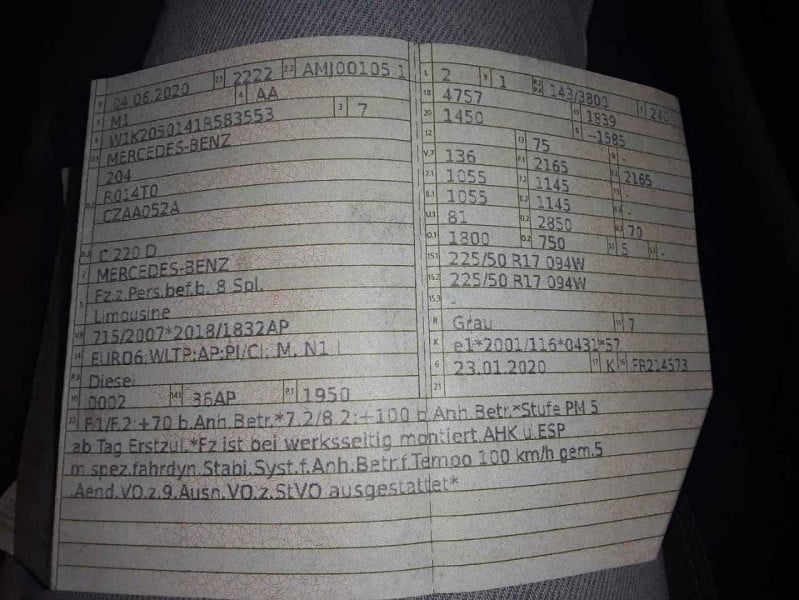 04.06.2020 2.1 2222 2.2 AMJ00105 1
J M1 4 AA
E W1K2050141R583553 3 7
D.1 MERCEDES-BENZ
204
D.2 R014T0
CZAA052A
D.3 C 220 D
2 MERCEDES-BENZ
5 Fz.z.Pers.bef.b. 8 Spl.
Limousine
V.9 715/2007*2018/1832AP
14 EURO6;WLTP;AP;PI/CI; M, N1 I
P.3 Diesel
10 0002 14.1 36AP P.1 1950
L 2 9 1 P.2 P.4 143/3800
18 4757 19 1839
20 1450 G -1585
12 - 13 75 Q -
V.7 136 F.1 2165 F.2 2165
7.1 1055 7.2 1145 7.3 -
8.1 1055 8.2 1145 8.3 -
U.1 81 U.2 2850 U.3 70
O.1 1800 O.2 750 S.1 5 S.2 -
15.1 225/50 R17 094W
15.2 225/50 R17 094W
15.3 -
R Grau 11 7
K e1*2001/116*0431*57
6 23.01.2020 17 K 16 FB214573
21
22 F.1/F.2:+70 b.Anh.Betr.*7.2/8.2:+100 b.Anh.Betr.*Stufe PM 5
ab Tag Erstzul.*Fz ist bei werksseitig montiert.AHK u.ESP
m.spez.fahrdyn.Stabi.Syst.f.Anh.Betr.f.Tempo 100 km/h gem.5
.Aend.VO.z.9.Ausn.VO.z.StVO ausgestattet*